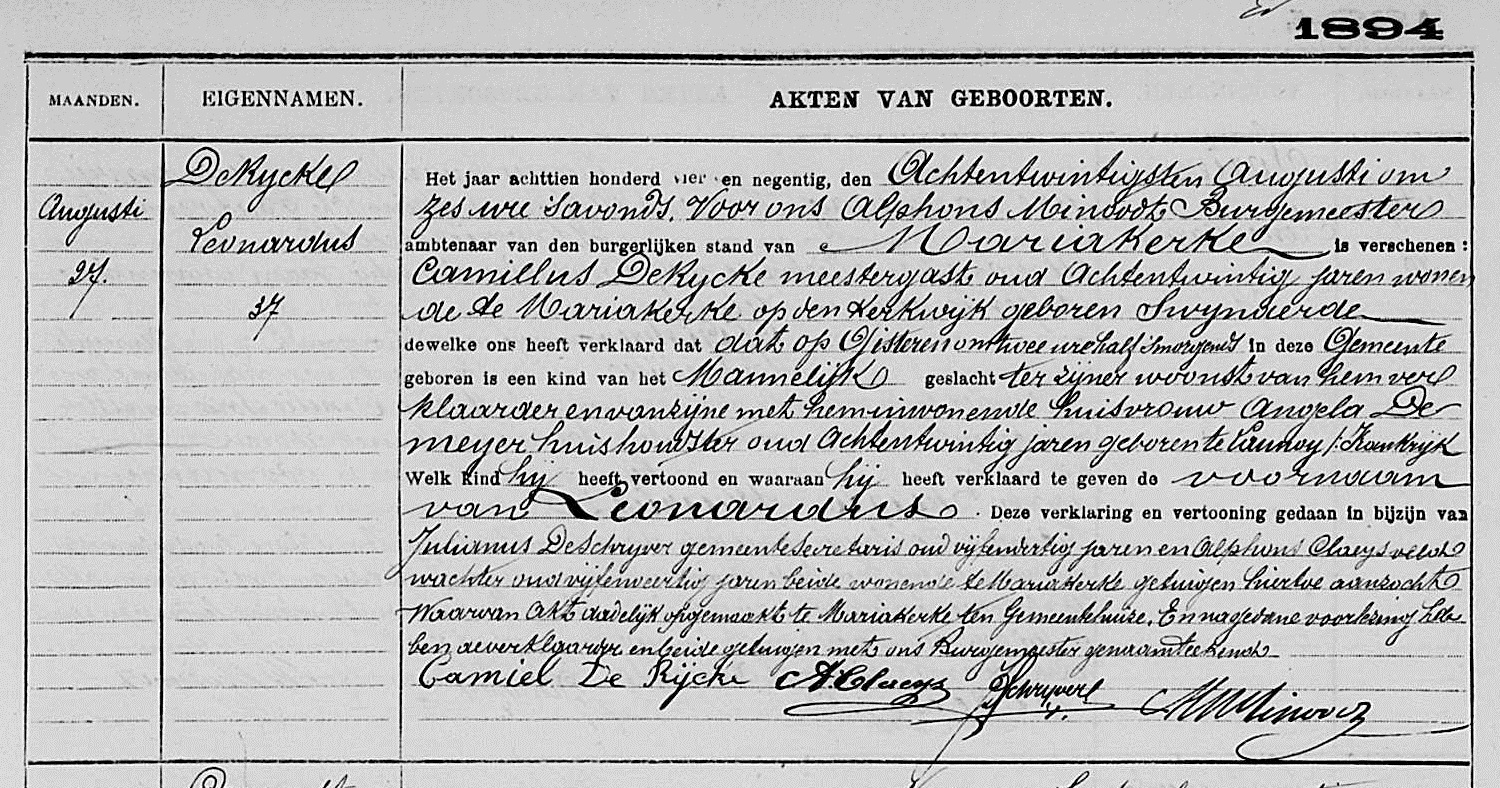 1894
MAANDEN.
EIGENNAMEN.
AKTEN VAN GEBOORTEN.
Augusti
27.
DeRycke
Leonardus
37
Het jaar achttien honderd vier en negentig, den Achtentwintigsten Augusti om
zes ure 'savonds. Voor ons Alphons Minoodt Burgemeester
ambtenaar van den burgerlijken stand van Mariakerke is verschenen:
Camillus DeRycke meestergast oud Achtentwintig jaren wonen
de te Mariakerke op den Kerkwijk geboren Swynaerde
dewelke ons heeft verklaard dat dat op Gisteren om twee ure half 'smorgends in deze Gemeente
geboren is een kind van het Mannelijk geslacht ter zijner woonst van hem ver
klaarder en van zijne met hem inwonende huisvrouw Angela De
meyer huishoudster oud Achtentwintig jaren geboren te Lannoy /: Frankrijk
Welk kind hij heeft vertoond en waaraan hij heeft verklaard te geven de voornaam
van Leonardus. Deze verklaring en vertooning gedaan in bijzijn van
Julianus DeSchryver gemeentesecretaris oud vijfendertig jaren en Alphons Claeys veld
wachter oud vijfenveertig jaren beide wonende te Mariakerke getuigen hiertoe aanzocht
Waarvan Akt dadelijk opgemaakt te Mariakerke ten Gemeentehuize. En na gedane voorlezing heb
ben de verklaarder en beide getuigen met ons Burgemeester genaamteekend
Camiel De Rijcke A. Claeys Schryver AMinoodt